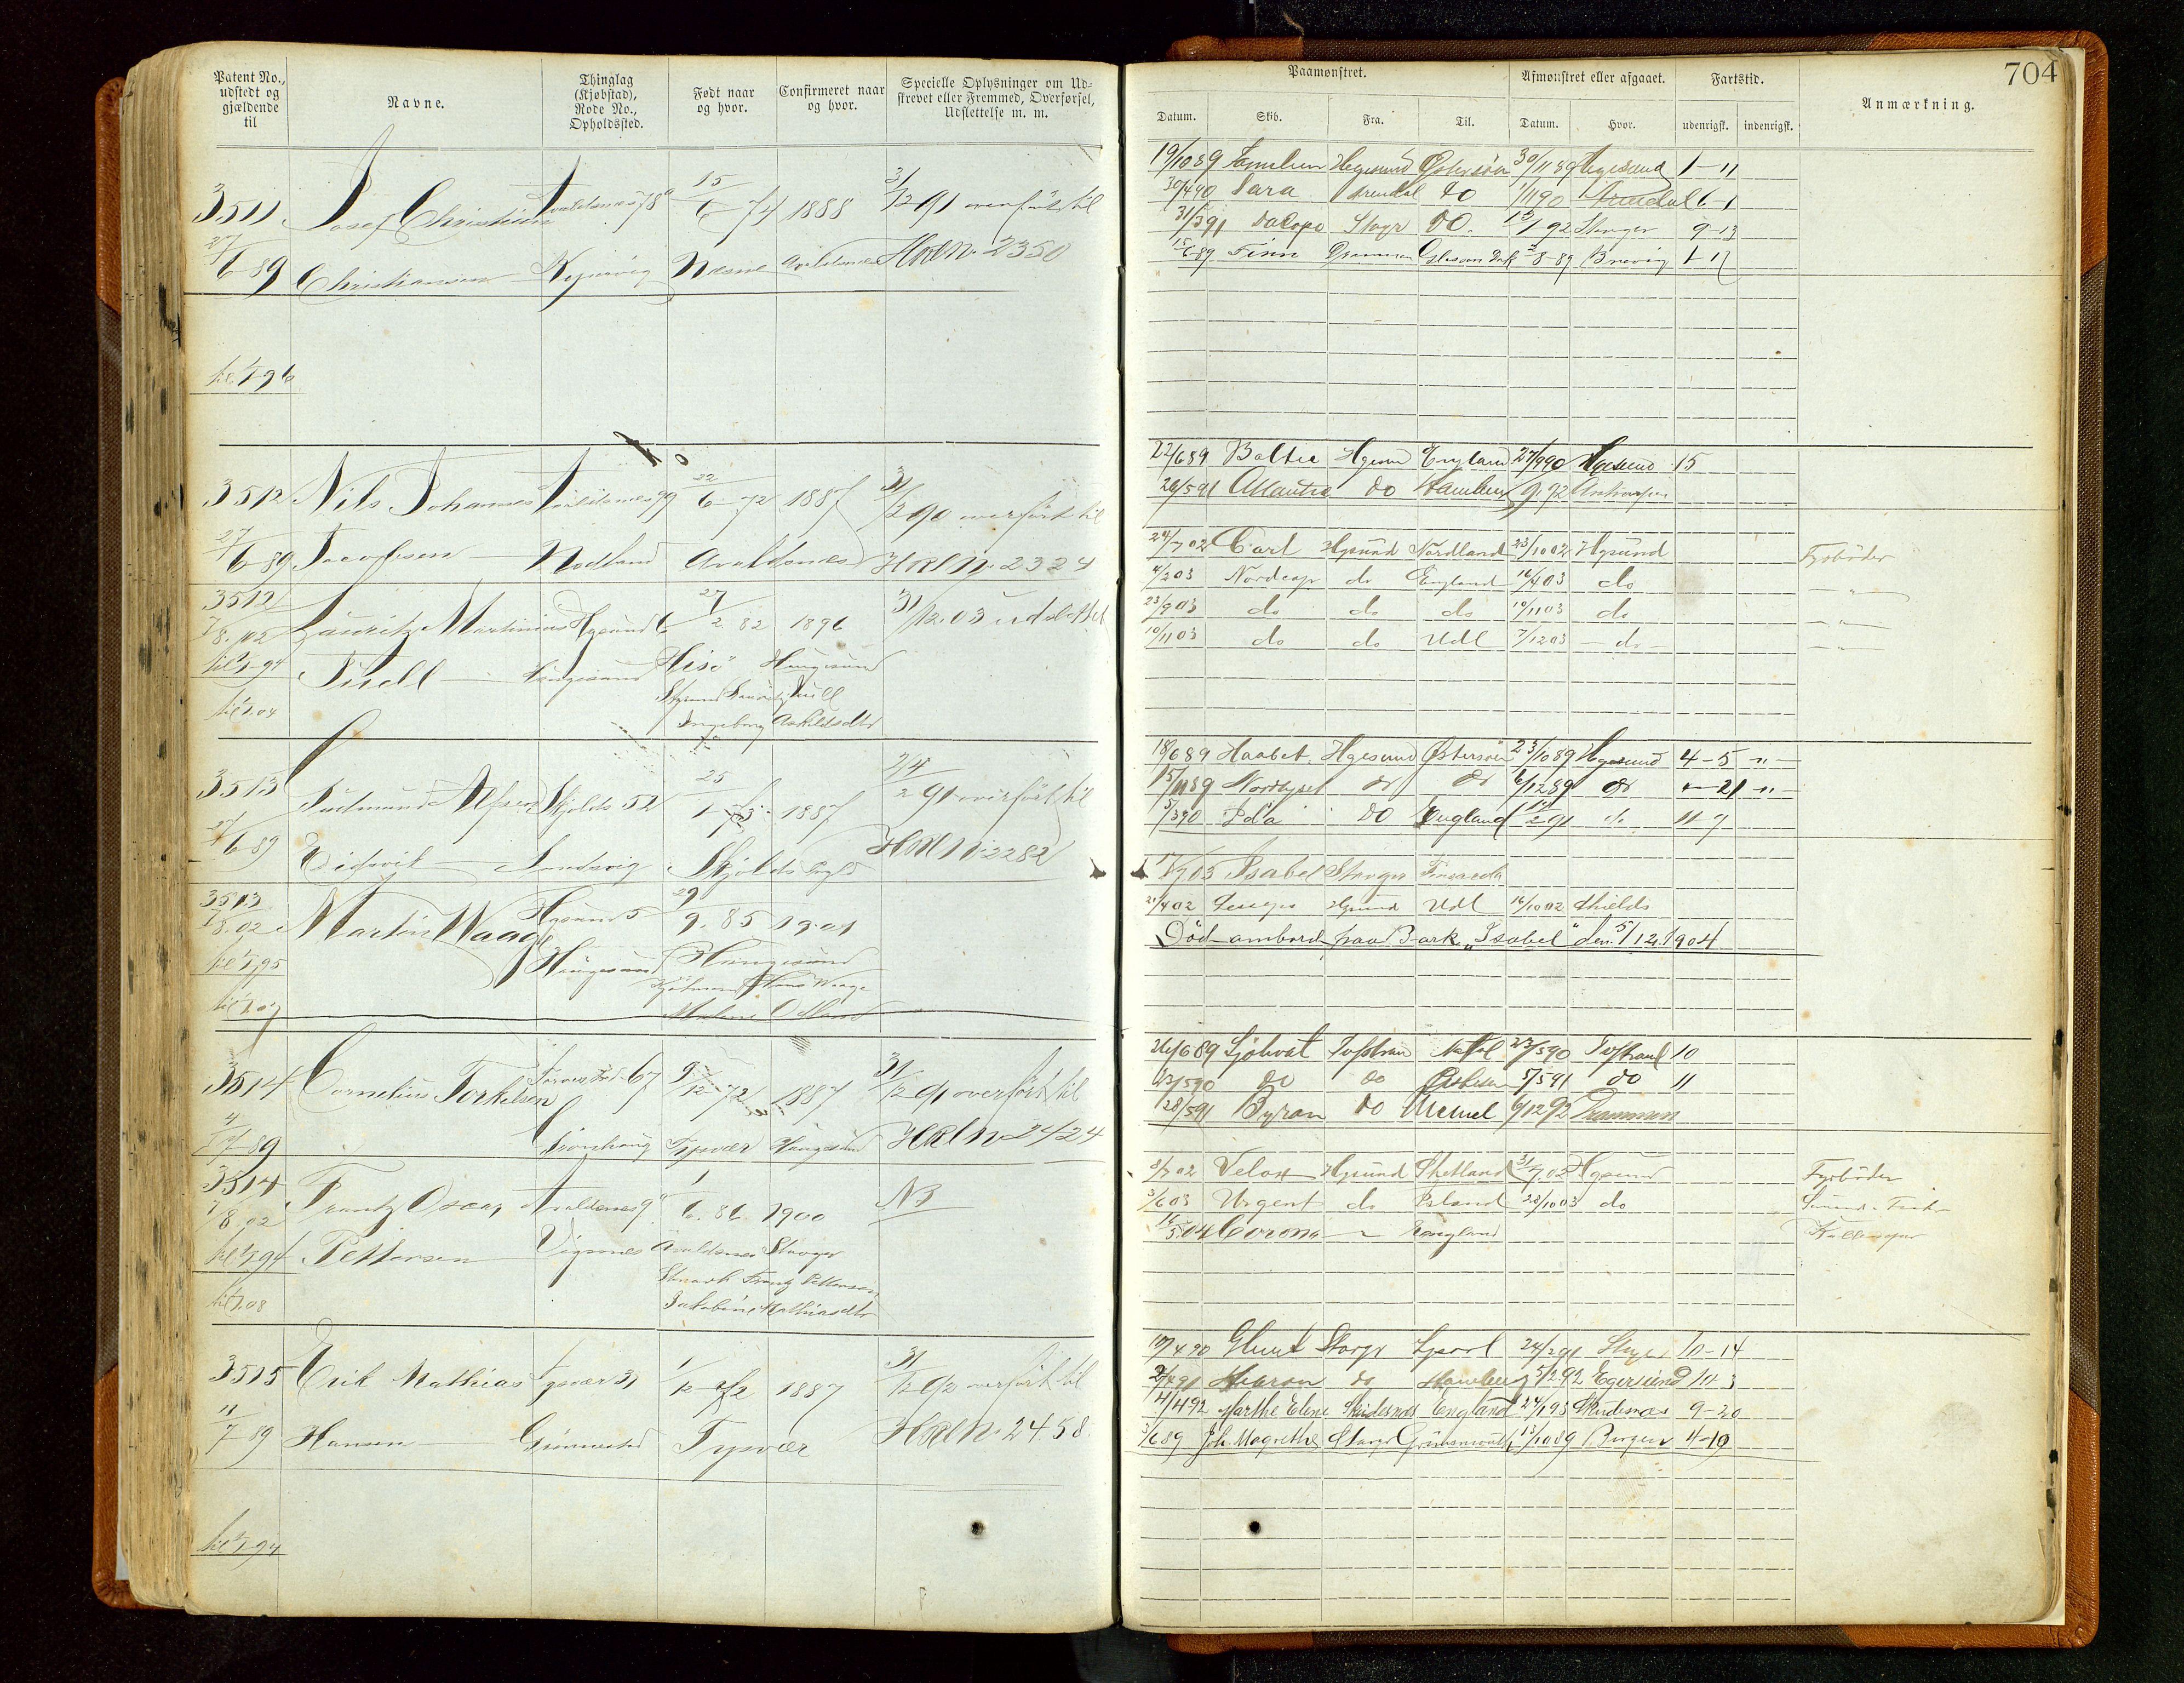 Patent No., udstedt og gjældende til
Navne.
Thinglag (Kjøbstad), Rode No., Opholdssted.
Født naar og hvor.
Confirmeret naar og hvor.
Specielle Oplysninger om Udskrevet eller Fremmed, Overførsel, Udslettelse m. m.
3511 Josef Christian Avaldsnes 78 15/6 74 1888 31/12 91 overført til
27/6 89 Christiansen Avaldsnes HRL No 2350
til 1/1 96
3512 Nils Johannes Avaldsnes 99 22/6 72 1887 31/12 90 overført til
27/6 89 Jacobsen Nodland Avaldsnes HRL No 2324
3512 Lauritz Martinius Hgsund 6 27/2 82 1896 31/12.03 udslettet
7/8.02
til 1/1 94 Haugesund Hisö Haugesund
til 1/1 04 Ingeborg Askildsdtr
3513 Gudmund Alfred Skjolds 52 25/1 73 1887 24/2 91 overført til
27/6 89 Eidsvik Sandvig Skjolds HRL No 2282
3513 Martin Waage Hgsund 5 29/9. 85 1901
7/8.02
til 1/1 95 Haugesund Haugesund
til 1/1 07 Hans Waage
Malene
3514 Cornelius Torkelsen 67 9/12 72 1887 31/12 91 overført til
4/7 89 Tysvær Haugesund HRL No 2424
3514 Frantz Oscar Avaldsnes 9 1/6. 86 1900 NB
7/8.02
til 1/1 94 Pettersen Vigsnes Avaldsnes Stavgr
til 1/1 08 Frantz Pettersen
Jakobine Mathiasdtr
3515 Erik Mathias Tysvær 31 1/12 72 1887 31/12 92 overført til
11/7 89 Hansen Grinnestad Tysvær HRL No 2458
til 1/1 94
704
Paamønstret.
Afmønstret eller afgaaet.
Fartstid.
Anmærkning.
Datum. Skib. Fra. Til. Datum. Hvor. udenrigsk. indenrigsk.
19/10 89 Familien Hgesund Østersøen 30/11 89 Hgesund 1-11
30/4 90 Sara Arendal do 1/11 90 Arendal 6-1
31/3 91 Stavgr do. 13/1 92 Stavger 9-13
15/6 89 Finn Drammen 2/8-89 Brevig 1-17
22/6 89 Baltic Hgesun England 27/9 90 Hgesund 15
26/5 91 Atlantic do Hamburg 9/92 Antwerpen
24/7 02 Carl Hgsund Nordland 23/10 02 Hgsund Fyrbøder
4/2 03 Nordcap do England 16/4 03 do — „ —
23/9 03 do do do 10/11 03 do — „ —
10/11 03 do do Udl 7/12 03 do — „ —
18/6 89 Haabet Hgesund Østersøen 23/10 89 Hgesund 4-5 „ —
15/11 89 Nordlyset do do 6/12 89 do „ - 21 „ —
5/3 90 Ida do England 2 91 do 11-9
03 Isabel Stavger
21/4 02 Hgsund Udl 16/10 02 Shields
Død ombord paa Bark „Isabel" den 5/12 1904
26/6 89 Sjohvat 23/5 90 10
23/5 90 do do 5/5 91 do 11
28/5 91 Byron do Memel 6/12 92 Drammen
8/7 02 Velox Hgsund Shetland 31/7.02 Hgsund Fyrbøder
3/6 03 Urgent do Island 28/10 03 do
14/5.04 Corona England
19/4 90 Glimt Stavgr 24/2 91 10-14
2/4 91 do Hamburg 5/2.92 Egersund 10-3
4/4 92 Marthe Elene Skudesnæs England 24/1 93 Skudesnæs 9-20
3/6 89 Joh. Magrethe Stavgr 13/10 89 Bergen 4-10